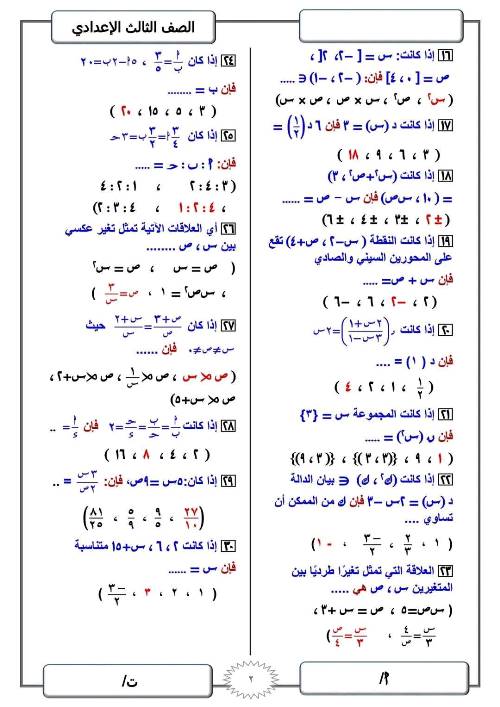 الصف الثالث الإعدادي
١٦ إذا كانت: س = [ -٢، ٢[ ،
ص = [ ٠ ، ٤] فإن: ( -٢ ، -١) ∈ .....
( س٢ ، ص٢ ، س × ص ، ص × س)
١٧ إذا كانت د (س) = ٣ فإن ٦ د(١/٢) =
( ٣ ، ٦ ، ٩ ، ١٨ )
١٨ إذا كانت (س٢+ص٢ ، ٣)
= (١٠ ، س ص) فإن س - ص = ......
( ± ٢ ، ±٣ ، ± ٤ ، ± ٦)
١٩ إذا كانت النقطة ( س-٢ ، ص+٤) تقع
على المحورين السيني والصادي
فإن س + ص= .....
( ٢ ، -٢ ، ٦ ، -٦ )
٢٠ إذا كانت د((٢س+١)/(٣س-١))=٢س
فإن د ( ١) = ....
( ١/٢ ، ١ ، ٢ ، ٤ )
٢١ إذا كانت المجموعة س = {٣}
فإن ن (س٢) = .....
( ١ ، ٩ ، {(٣ ، ٣)} ، {(٣ ، ٩)}
٢٢ إذا كانت (ك٢ ، ك) ∈ بيان الدالة
د (س) = ٢س -٣ فإن ك من الممكن أن
تساوي ....
( ١ ، ٢/٣ ، -٣/٢ ، -١ )
٢٣ العلاقة التي تمثل تغيرًا طرديًا بين
المتغيرين س ، ص هي .....
( س ص=٥ ، ص = س +٣ ،
س/٣ = ٤/ص ، س/٣ = ص/٤ )
٢٤ إذا كان أ/ب = ٣/٥ ، ٥أ-٢ب=٢٠
فإن ب = ........
( ٣ ، ٥ ، ١٥ ، ٢٠ )
٢٥ إذا كان ٣/٤ أ = ٣/٢ ب = ٣حـ
فإن: أ : ب : حـ = .....
( ٤:٢:٣ ، ٤:٢:١
، ١:٢:٤ ، ٢:٣:٤)
٢٦ أي العلاقات الآتية تمثل تغير عكسي
بين س ، ص ........
( ص = س ، ص = س٢
، س ص٢ = ١ ، ص = ٣/س )
٢٧ إذا كان (ص+٣)/ص = (س+٢)/س حيث
س≠ص≠٠ فإن ......
( ص∝س ، ص∝١/س ، ص∝س+٢ ،
ص∝س+٥)
٢٨ إذا كانت أ/ب = ب/حـ = حـ/ء = ٢ فإن أ/ء = ..
( ٢ ، ٤ ، ٨ ، ١٦ )
٢٩ إذا كان: ٥س =٩ص، فإن: ٣س/٢ص = ..
(٢٧/١٠ ، ٩/٥ ، ٥/٩ ، ٨١/٢٥)
٣٠ إذا كانت ٢ ، ٦ ، س+١٥ متناسبة
فإن س = ......
( ١ ، ٢ ، ٣ ، -٣/٢ )
أ/
٢
ت/